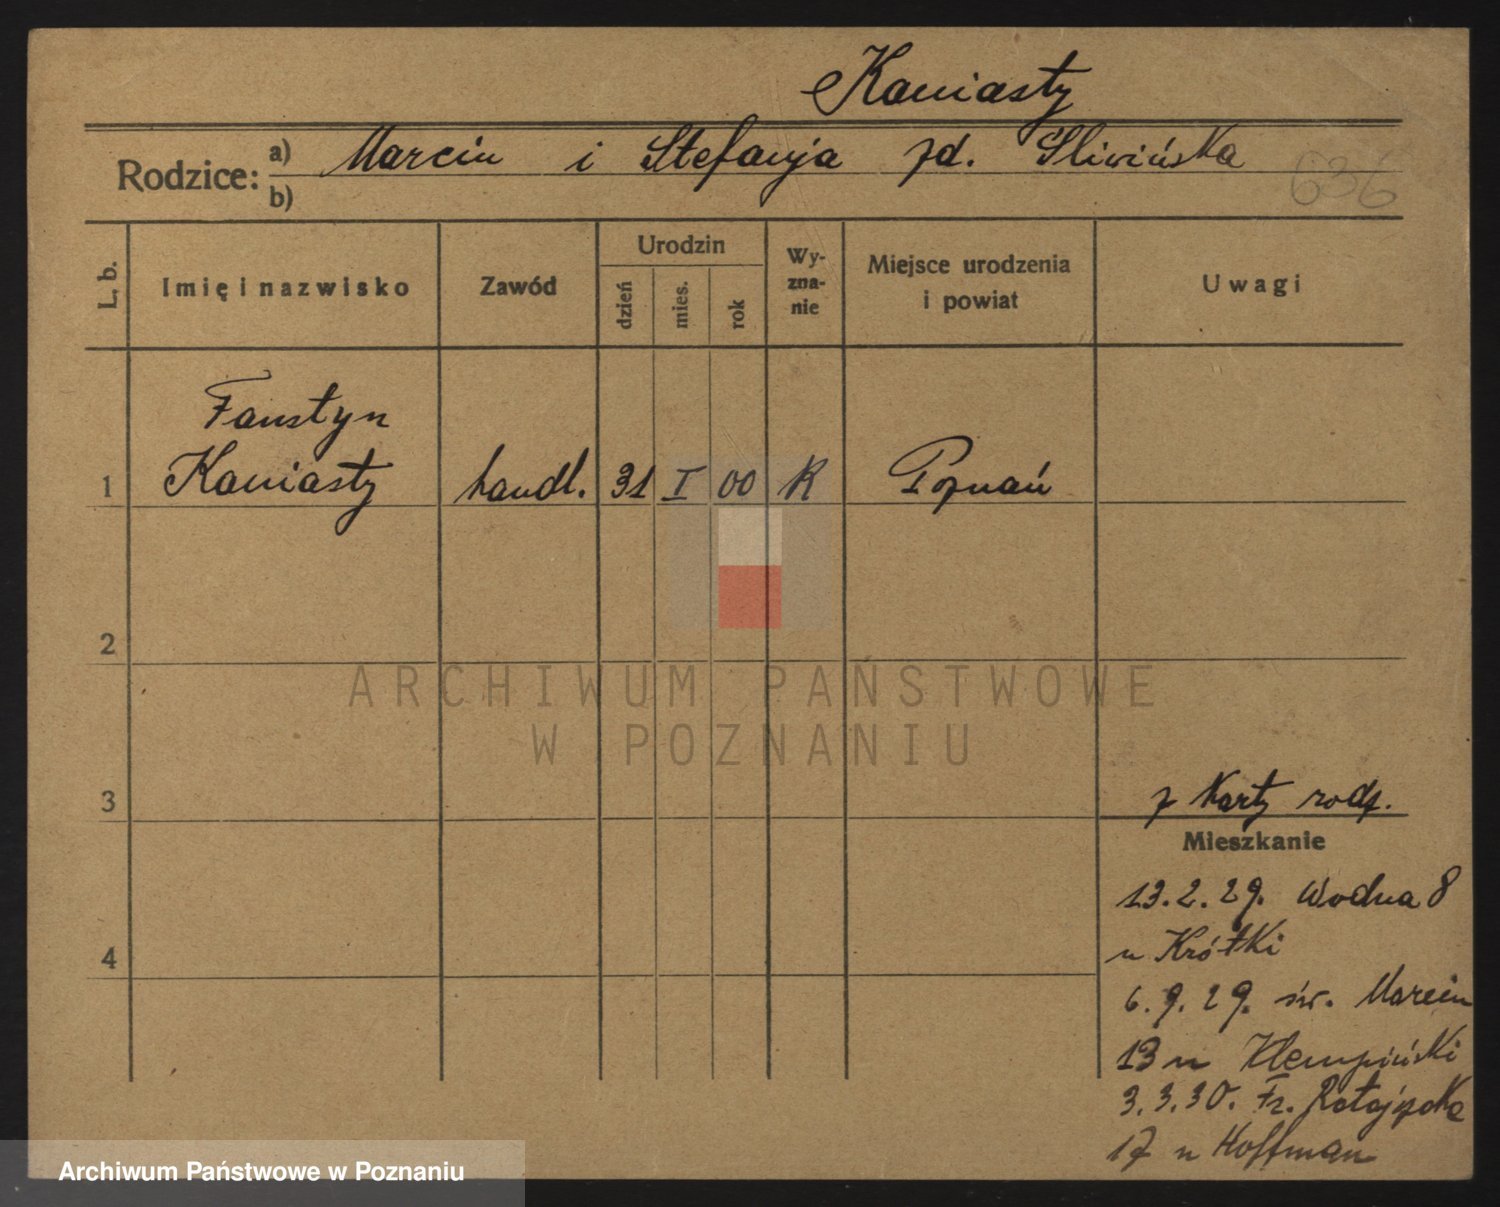 Kaniasty
Rodzice: a) Marcin i Stefanja zd. Sliwińska
b)
636
L. b.
Imię i nazwisko
Zawód
Urodzin
dzień
mies.
rok
Wy-
zna-
nie
Miejsce urodzenia
i powiat
Uwagi
Faustyn
1 Kaniasty handl. 31 I 00 K Poznań
2
ARCHIWUM PAŃSTWOWE
W POZNANIU
3
z Karty rodz.
Mieszkanie
13.2.29. Wodna 8
u Krótki
4
6.9.29. św. Marcin
13 u Klempiński
3.3.30. Fr. Ratajczaka
17 u Hoffman
Archiwum Państwowe w Poznaniu